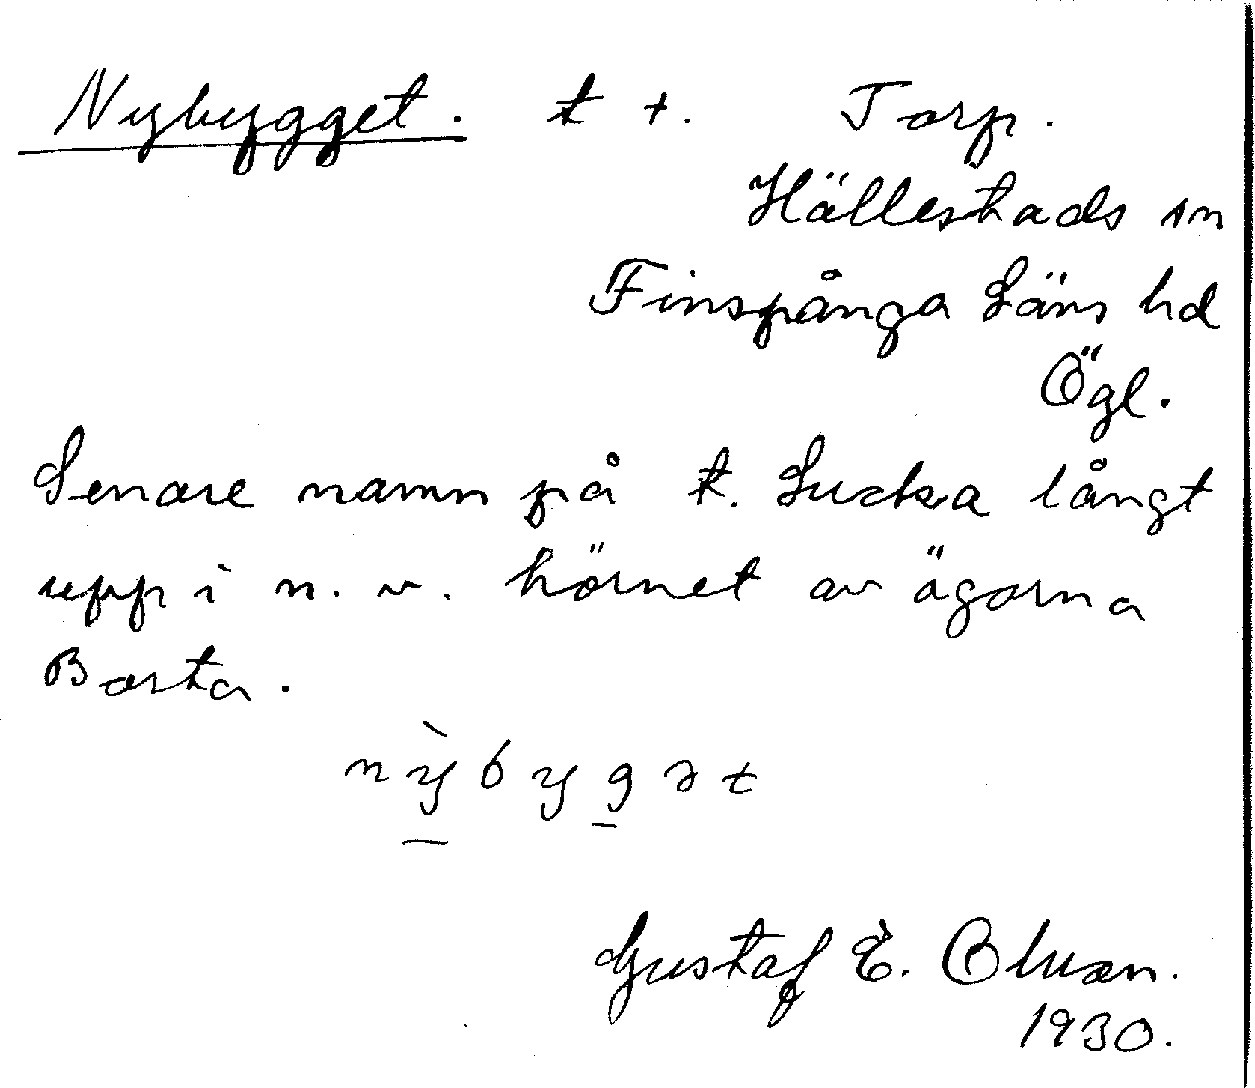 Nybygget. t +. Torp.
Hällestads sn
Finspånga Läns hd
Ögl.
Senare namn på t. Lucka långt
upp i n. v. hörnet av ägorna
Borta.
nỳbygət
Gustaf E. 
1930.